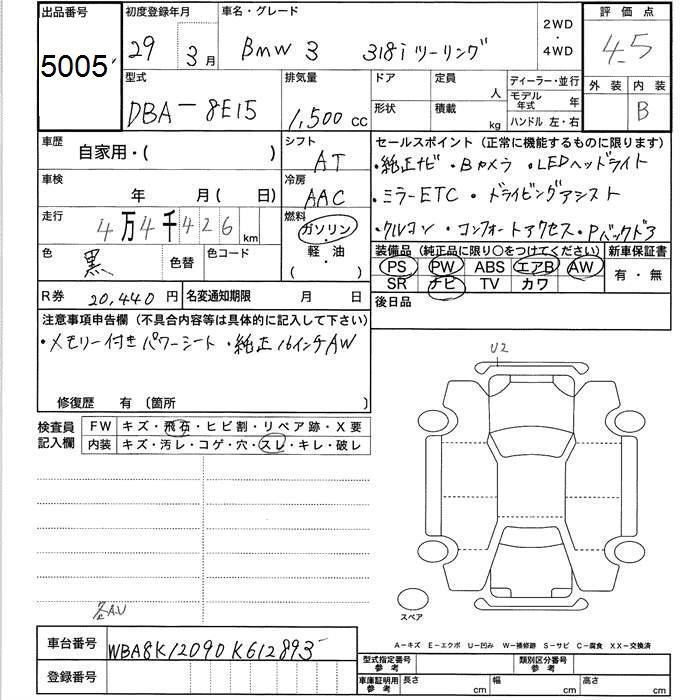 出品番号 初度登録年月 車名・グレード 2WD・4WD 評価点
5005 29 3月 BMW 3 318i ツーリング 4.5
型式 排気量 ドア 定員 人 ディーラー・並行 外装 内装
DBA-8E15 1,500cc 形状 積載 kg モデル年式 年 B
ハンドル 左・右
車歴 自家用・( ) シフト AT セールスポイント (正常に機能するものに限ります)
・純正ナビ ・Bカメラ ・LEDヘッドライト
車検 年 月( 日) 冷房 AAC ・ミラーETC ・ドライビングアシスト
走行 4万4千426km 燃料 ガソリン・軽・油 ( ) ・クルコン ・コンフォートアクセス・Pバックドア
色 黒 色替 色コード 装備品 (純正品に限り○をつけてください) 新車保証書
PS PW ABS エアB AW 有・無
SR ナビ TV カワ
R券 20,440円 名変通知期限 月 日 後日品
注意事項申告欄 (不具合内容等は具体的に記入して下さい)
・メモリー付きパワーシート ・純正16インチAW
U2
修復歴 有 (箇所 )
検査員記入欄 FW キズ・飛石・ヒビ割・リペア跡・X要
内装 キズ・汚レ・コゲ・穴・スレ・キレ・破レ
スペア
車台番号 WBA8K12090K612893
登録番号
A-キズ E-エクボ U-凹み W-補修跡 S-サビ C-腐食 XX-交換済
型式指定番号 参考 類別区分番号 参考
車庫証明用 参考 長さ cm 幅 cm 高さ cm